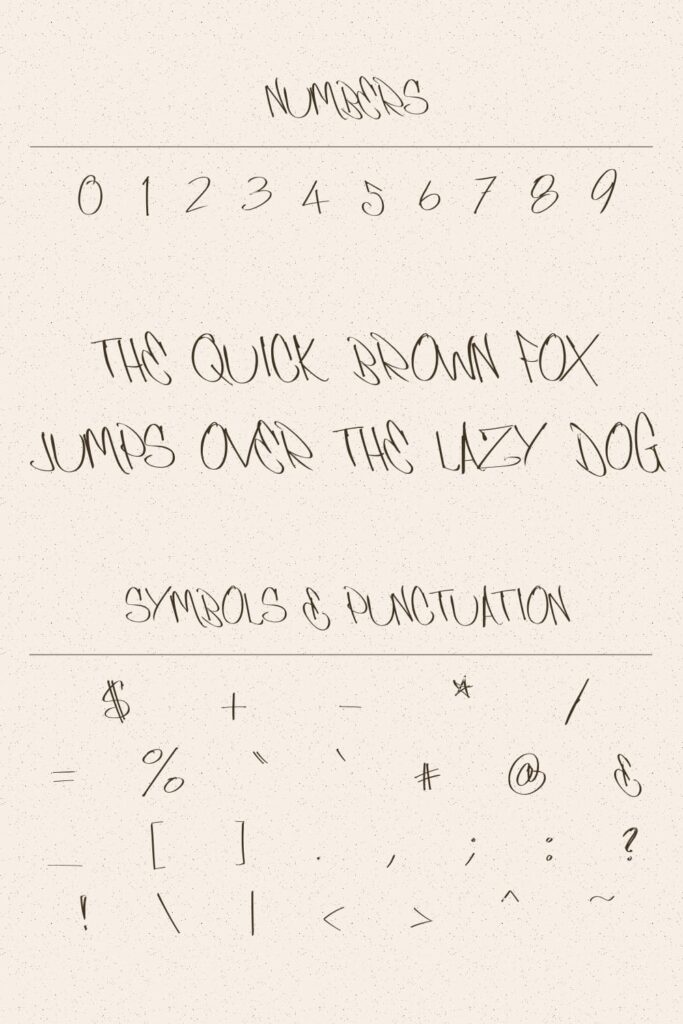 NUMBERS
0 1 2 3 4 5 6 7 8 9
THE QUICK BROWN FOX
JUMPS OVER THE LAZY DOG
SYMBOLS & PUNCTUATION
$ + - * /
= % " ' # @ &
_ [ ] . , ; : ?
! \ | < > ^ ~